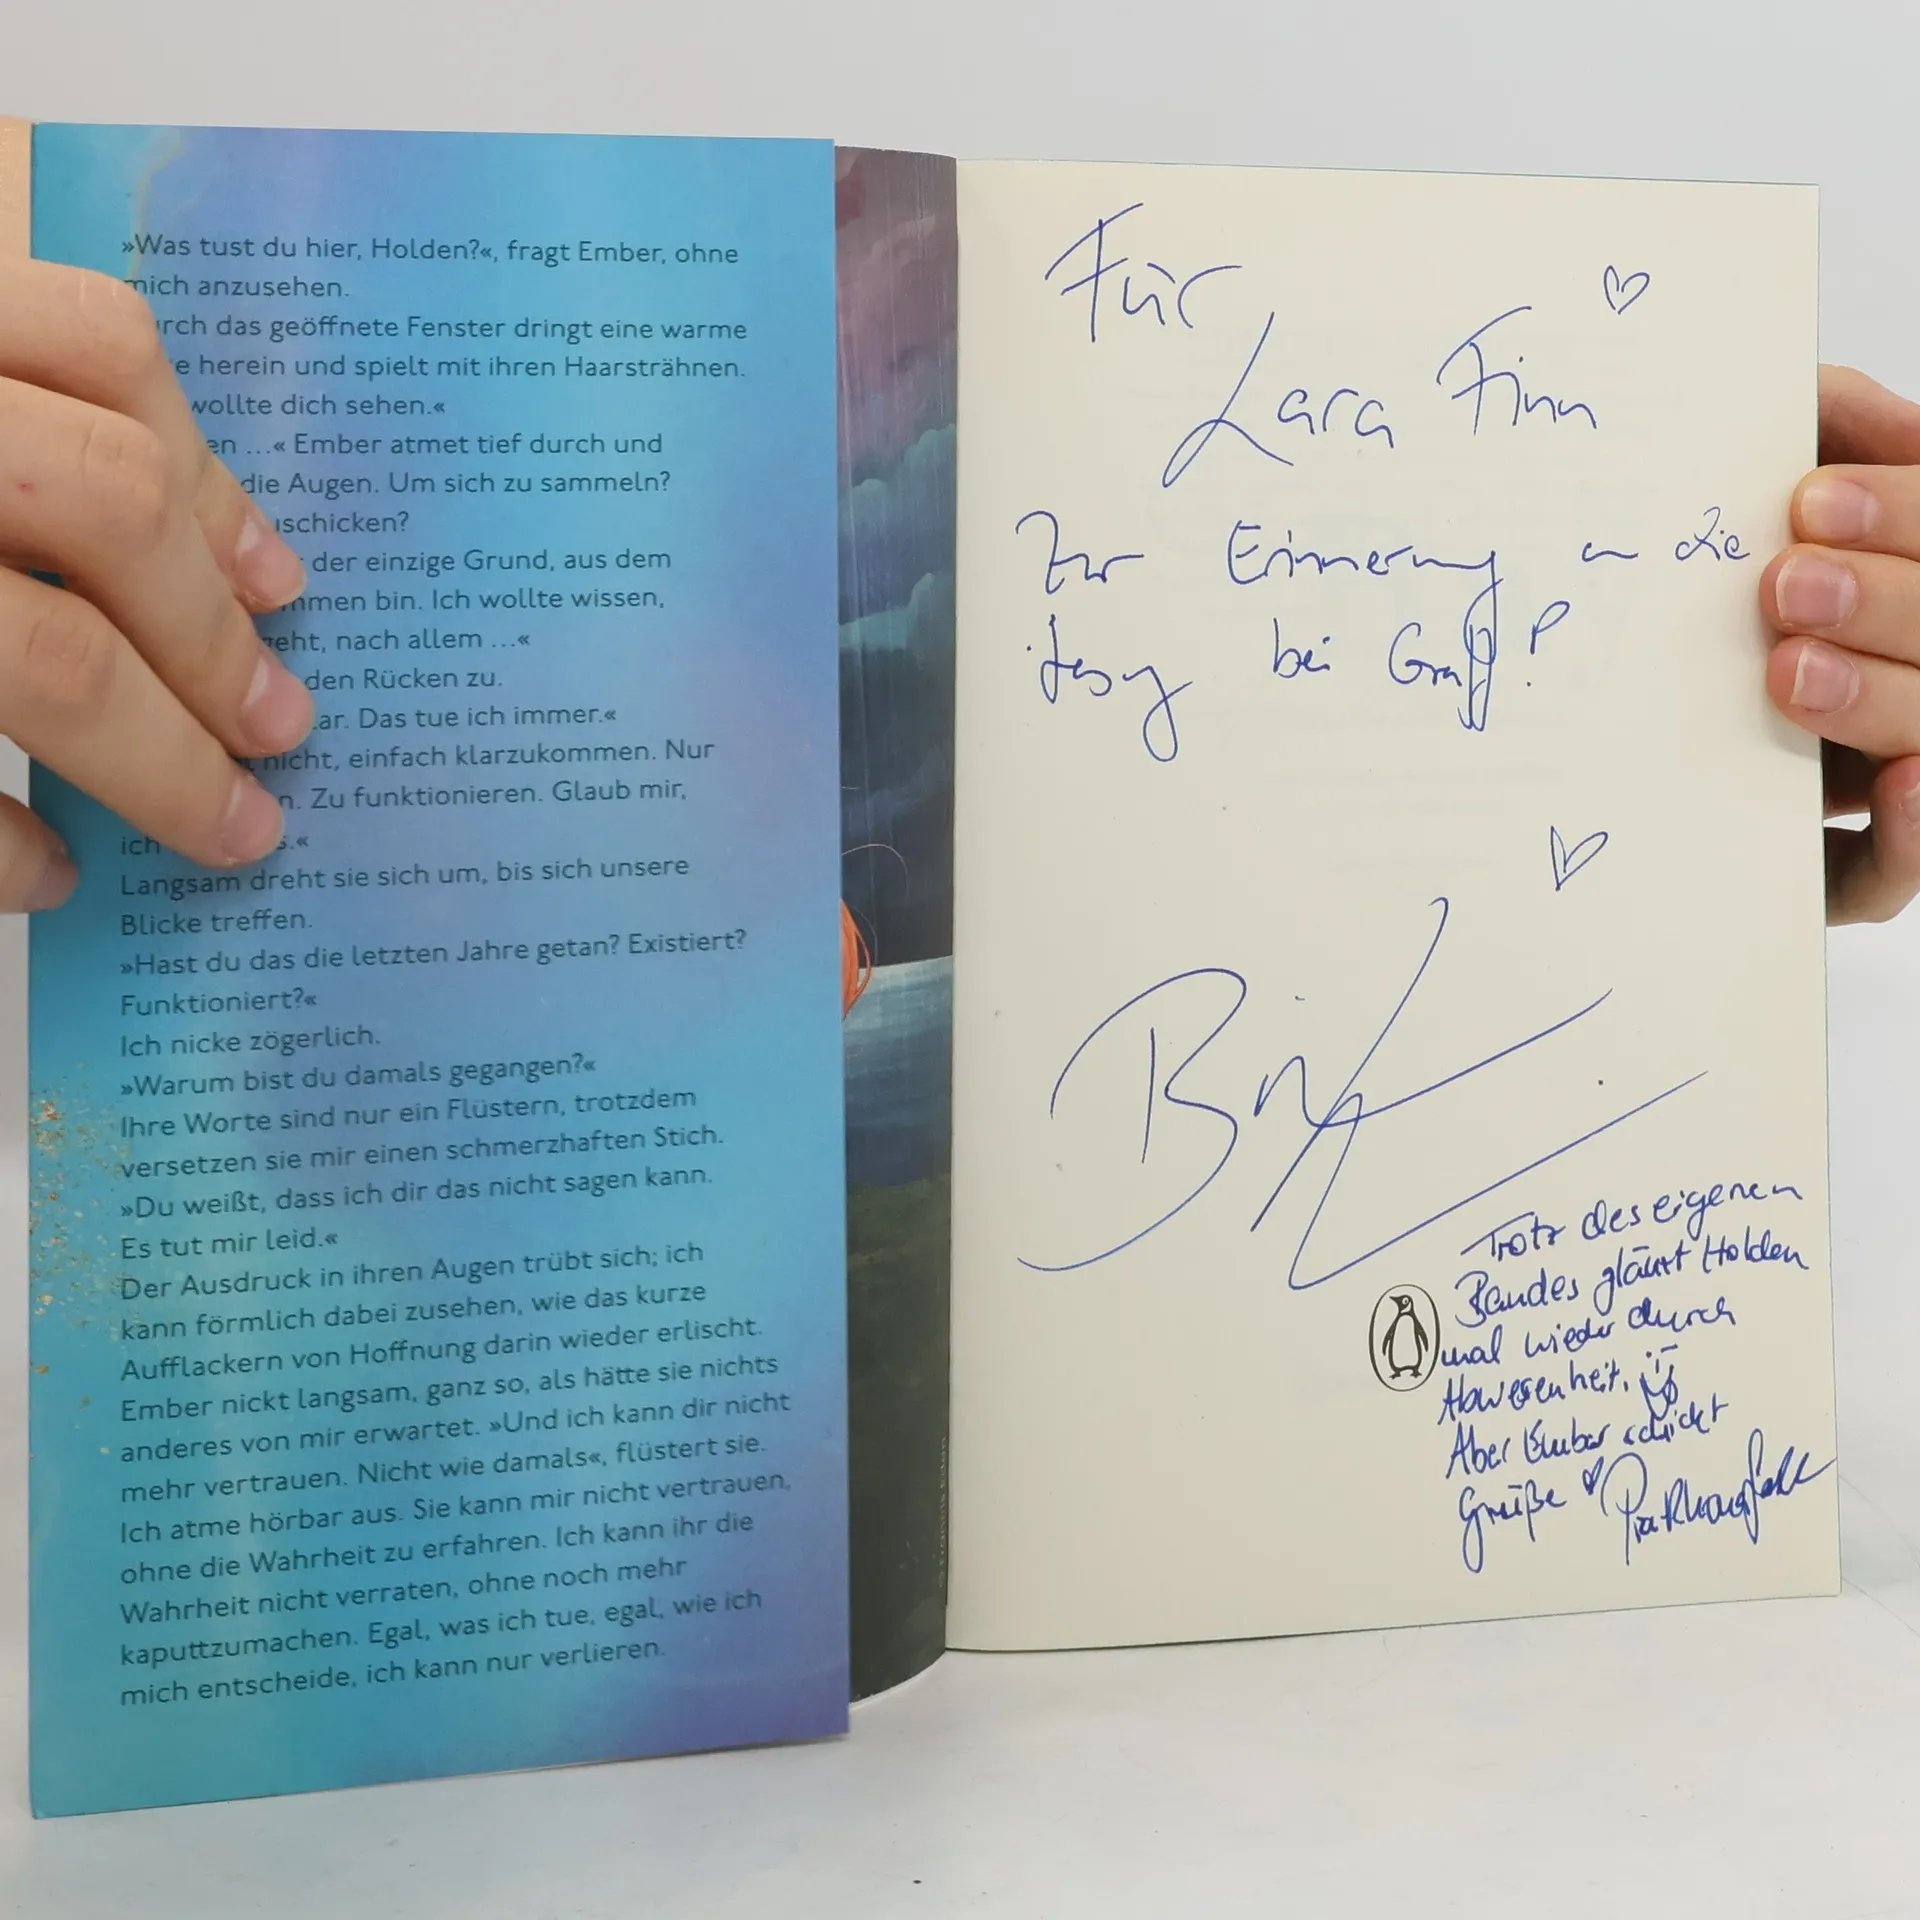 »Was tust du hier, Holden?«, fragt Ember, ohne
mich anzusehen.
rch das geöffnete Fenster dringt eine warme
e herein und spielt mit ihren Haarsträhnen.
wollte dich sehen.«
en ...« Ember atmet tief durch und
die Augen. Um sich zu sammeln?
schicken?
der einzige Grund, aus dem
mmen bin. Ich wollte wissen,
geht, nach allem ...«
den Rücken zu.
ar. Das tue ich immer.«
nicht, einfach klarzukommen. Nur
n. Zu funktionieren. Glaub mir,
ich s.«
Langsam dreht sie sich um, bis sich unsere
Blicke treffen.
»Hast du das die letzten Jahre getan? Existiert?
Funktioniert?«
Ich nicke zögerlich.
»Warum bist du damals gegangen?«
Ihre Worte sind nur ein Flüstern, trotzdem
versetzen sie mir einen schmerzhaften Stich.
»Du weißt, dass ich dir das nicht sagen kann.
Es tut mir leid.«
Der Ausdruck in ihren Augen trübt sich; ich
kann förmlich dabei zusehen, wie das kurze
Aufflackern von Hoffnung darin wieder erlischt.
Ember nickt langsam, ganz so, als hätte sie nichts
anderes von mir erwartet. »Und ich kann dir nicht
mehr vertrauen. Nicht wie damals«, flüstert sie.
Ich atme hörbar aus. Sie kann mir nicht vertrauen,
ohne die Wahrheit zu erfahren. Ich kann ihr die
Wahrheit nicht verraten, ohne noch mehr
kaputtzumachen. Egal, was ich tue, egal, wie ich
mich entscheide, ich kann nur verlieren.
Für
Lara Finn
Zur Erinnerung an die
bei Graff!
Trotz des eigenen
Bandes glänzt Holden
mal wieder durch
Abwesenheit.
Aber Ember schickt
Grüße